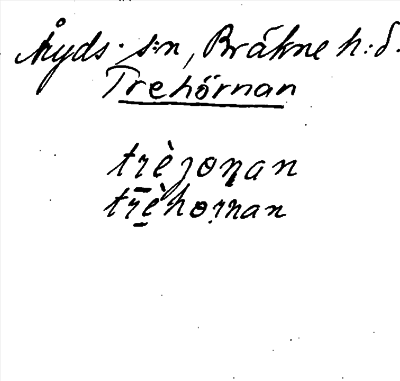 Åryds s:n, Bräkne h:d.
Trehörnan
trèjoṇan
trèhoṛnan